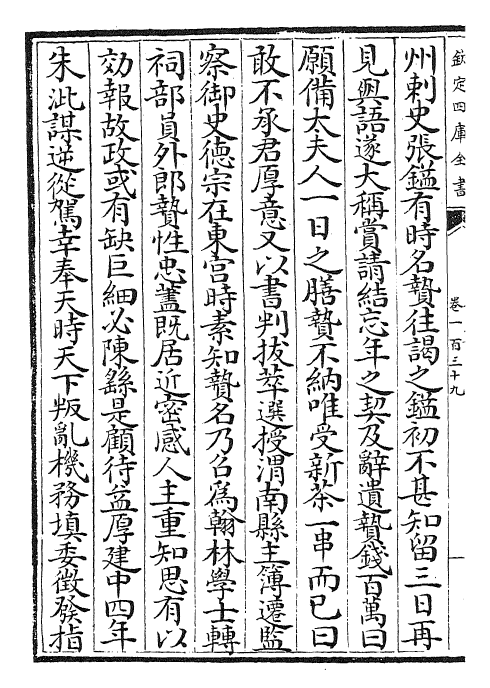 欽定四庫全書
卷一百三十九
一
州刺史張鎰有時名贄往謁之鎰初不甚知留三日再
見與語遂大稱賞請結忘年之契及辭遺贄錢百萬曰
願備太夫人一日之膳贄不納唯受新茶一串而已曰
敢不承君厚意又以書判拔萃選授渭南縣主簿遷監
察御史德宗在東宮時素知贄名乃召為翰林學士轉
祠部員外郎贄性忠藎既居近密感人主重知思有以
効報故政或有缺巨細必陳繇是顧待益厚建中四年
朱泚謀逆從駕幸奉天時天下叛亂機務填委徵發指